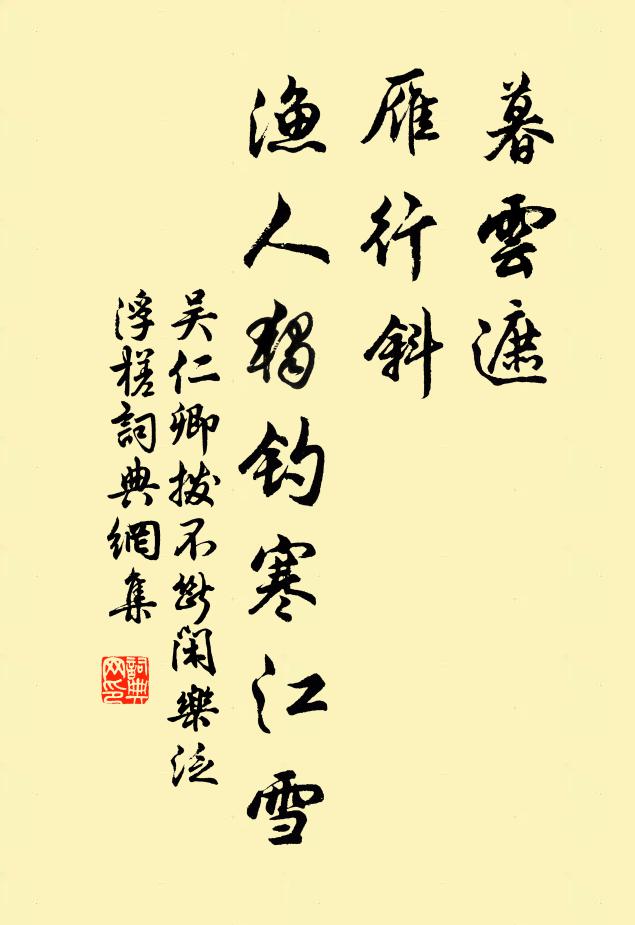 暮雲遮
雁行斜
漁人獨釣寒江雪
吴仁卿拨不斷閑樂泛
浮槎詞典網集
詞典網印